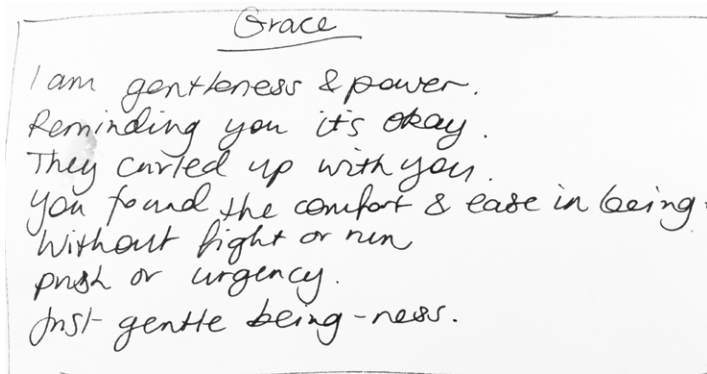 Grace
I am gentleness & power.
Reminding you it's okay.
They curled up with you.
You found the comfort & ease in being-
Without fight or run
push or urgency.
Just gentle being-ness.